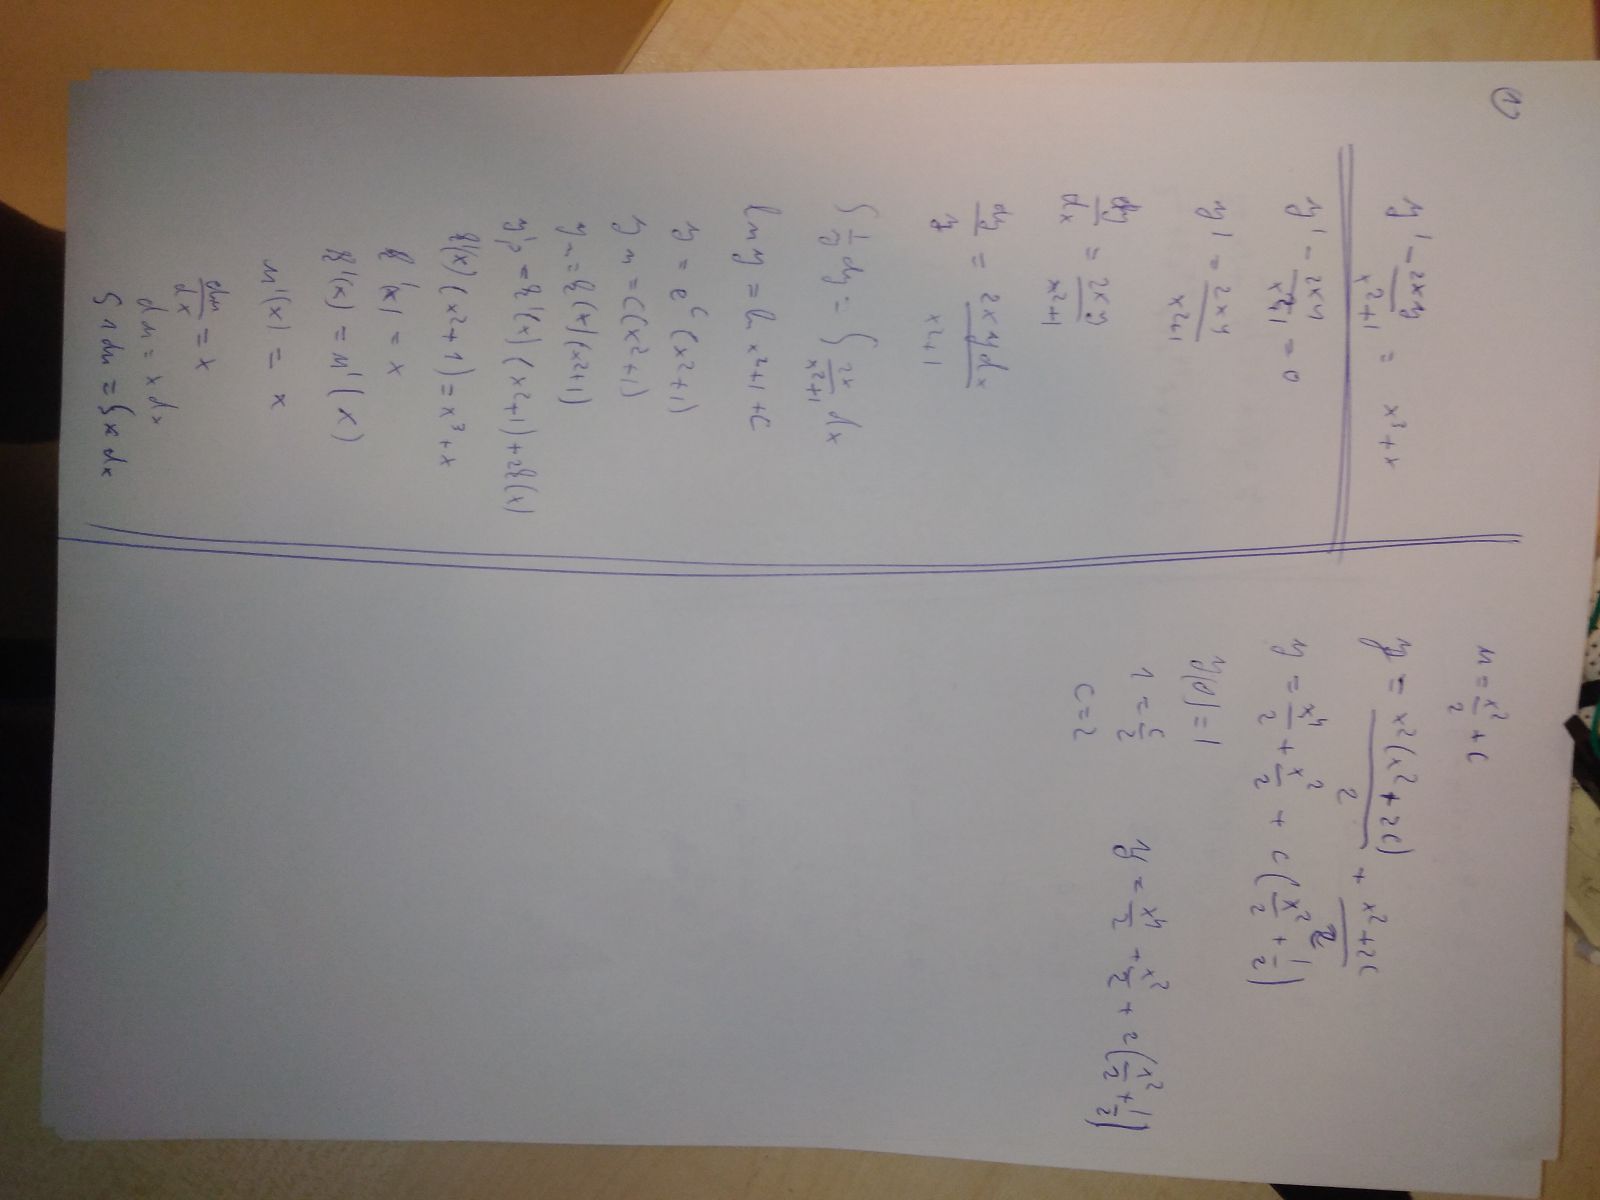 1
y' - 2xy/(x²+1) = x³+x
y' - 2xy/(x²+1) = 0
y' = 2xy/(x²+1)
dy/dx = 2xy/(x²+1)
dy/y = 2xydx/(x²+1)
∫ 1/y dy = ∫ 2x/(x²+1) dx
ln y = ln x²+1 + C
y = e^C (x²+1)
y_n = C(x²+1)
y_n = k(x)(x²+1)
y'p = k'(x) (x²+1) + 2k(x)
k'(x) (x²+1) = x³+x
k'(x) = x
k'(x) = u'(x)
u'(x) = x
du/dx = x
du = x dx
∫ 1 du = ∫ x dx
u = x²/2 + C
y = x²(x²+2C)/2 + (x²+2C)/2
y = x⁴/2 + x²/2 + C(x²/2 + 1/2)
y(0) = 1
1 = C/2
y = x⁴/2 + x²/2 + 2(x²/2 + 1/2)
C = 2